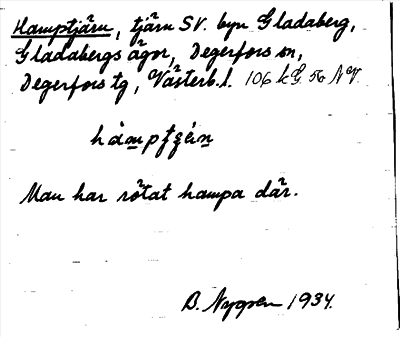 Hamptjärn, tjärn SV. byn Gladaberg,
Gladabergs ägor, Degerfors sn,
Degerfors tg, Västerb. l. 106 k G. 56 NV
Man har rötat hampa där.
B. Nygren 1934.